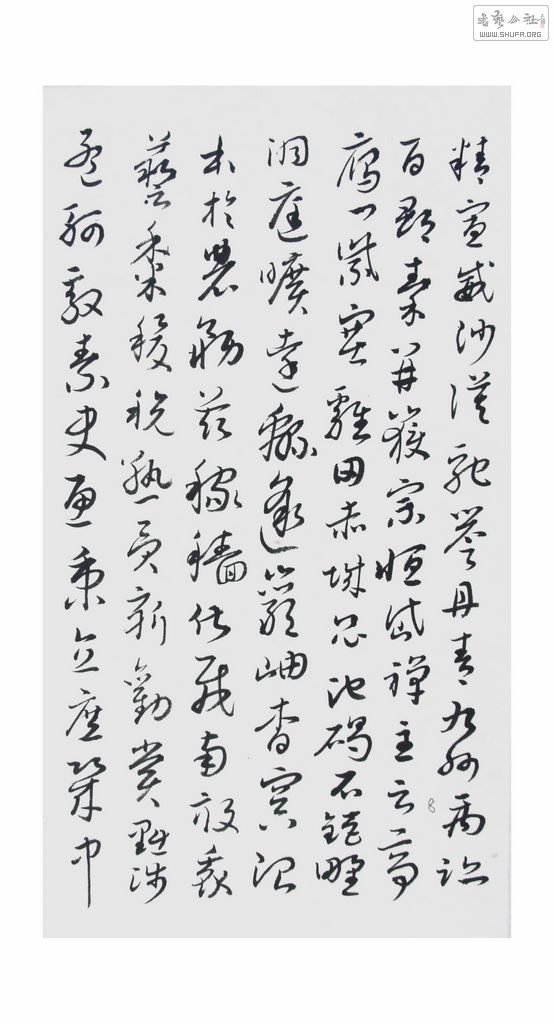 書藝公社
WWW.SHUFA.ORG
精宣威沙漠馳譽丹青九州禹跡
百郡秦并嶽宗恒岱禪主云亭
雁門紫塞雞田赤城昆池碣石鉅野
洞庭曠遠綿邈巖岫杳冥治
本於農務茲稼穡俶載南畝我
藝黍稷稅熟貢新勸賞黜陟
孟軻敦素史魚秉直庶幾中
8